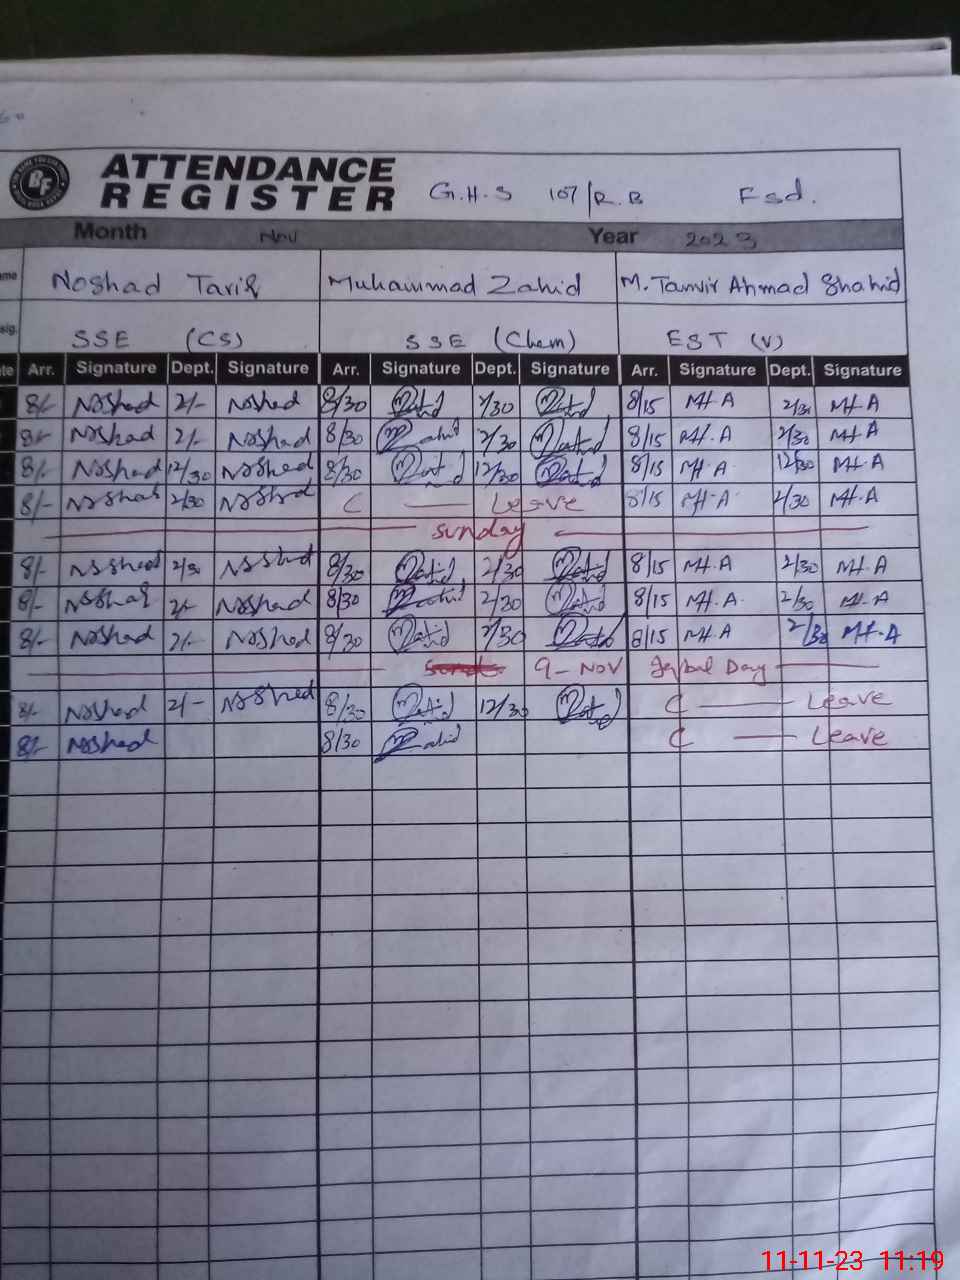 ATTENDANCE
REGISTER G.H.S 107/R.B Fsd.
Month Nov Year 2023
Noshad Tariq Muhammad Zahid M. Tanvir Ahmad Shahid
SSE (CS) SSE (Chem) EST (V)
Arr. Signature Dept. Signature Arr. Signature Dept. Signature Arr. Signature Dept. Signature
8/- Noshad 2/- Noshad 8/30 Zahid 2/30 Zahid 8/15 M.A 2/30 M.A
8/- Noshad 2/- Noshad 8/30 Zahid 2/30 Zahid 8/15 M.A 2/30 M.A
8/- Noshad 12/30 Noshad 8/30 Zahid 12/30 Zahid 8/15 M.A 12/30 M.A
8/- Noshad 2/30 Noshad C — Leave 8/15 M.A 2/30 M.A
Sunday
8/- Noshad 2/30 Noshad 8/30 Zahid 2/30 Zahid 8/15 M.A 2/30 M.A
8/- Noshad 2/- Noshad 8/30 Zahid 2/30 Zahid 8/15 M.A 2/30 M.A
8/- Noshad 2/- Noshad 8/30 Zahid 2/30 Zahid 8/15 M.A 2/30 M.A
9-NOV Iqbal Day
8/- Noshad 2/- Noshad 8/30 Zahid 12/30 Zahid C — Leave
8/- Noshad 8/30 Zahid C — Leave
11-11-23 11:19